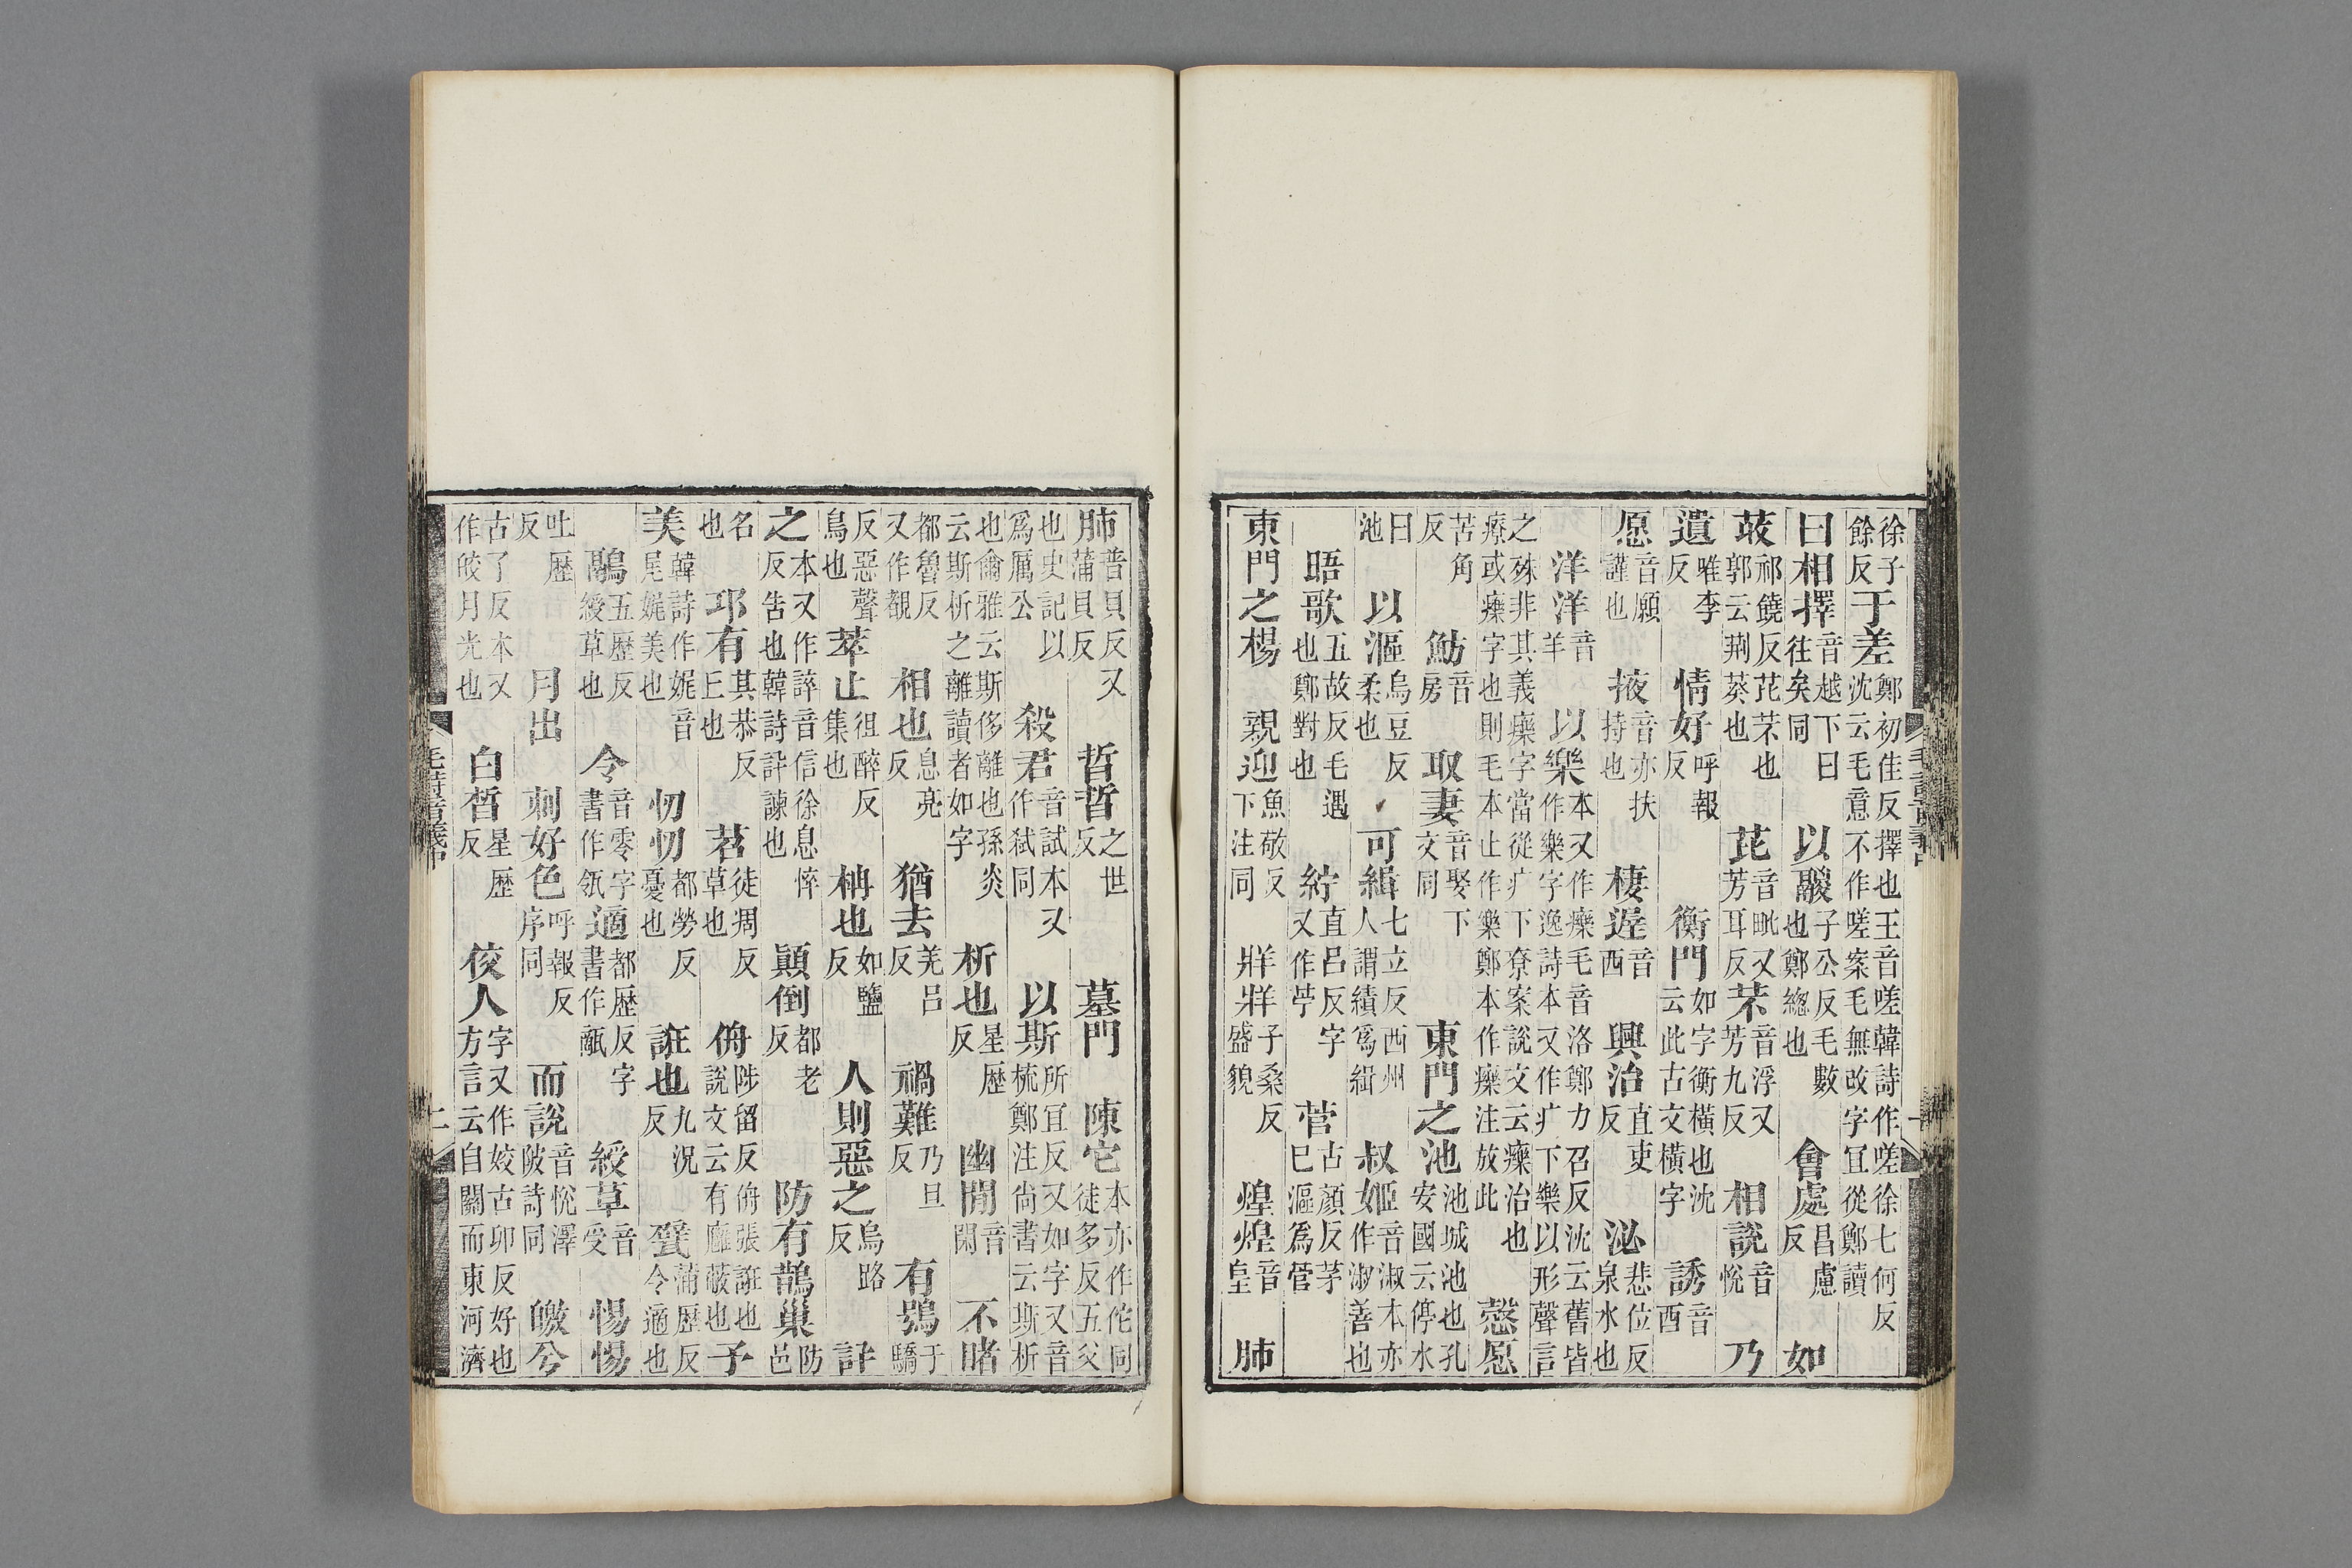 徐子餘反于差鄭初佳反擇也王音嗟韓詩作嗟徐七何反沈云毛意不作嗟案毛無改字宜從鄭讀
曰相擇音越下曰往矣同以鬷子公反毛數也鄭緫也會處昌慮反如
荍祁饒反芘芣也郭云荆葵也芘音毗又芳耳反芣音浮又芳九反相說音悅乃
遺唯李反情好呼報反衡門如字衡橫也沈云此古文橫字誘音酉
愿音願謹也掖音亦扶持也棲遟音西興治直吏反泌悲位反泉水也
洋洋音羊以樂本又作𤻲毛音洛鄭力召反沈云舊皆作樂字逸詩本又作疒下樂以形聲言
之殊非其義𤻲字當從疒下尞案說文云𤻲治也療或𤻲字也則毛本止作樂鄭本作𤻲注放此慤愿
苦角反魴音房取妻音娶下文同東門之池池城池也孔安國云停水
曰池以漚烏豆反柔也可緝七立反西州人謂績爲緝叔姬音淑本亦作淑善也
晤歌五故反毛遇也鄭對也紵直呂反字又作苧菅古顏反茅已漚爲菅
東門之楊親迎魚敬反下注同牂牂子桑反盛貌煌煌音皇肺
肺普貝反又蒲貝反晢晢之世反墓門陳它本亦作佗同徒多反五父
也史記以爲厲公殺君音試本又作弑同以斯所宜反又如字又音梳鄭注尙書云斯析
也爾雅云斯侈離也孫炎云斯析之離讀者如字析也星歷反幽閒音閑不睹
都魯反又作覩相也息亮反猶去羌呂反禍難乃旦反有鴞于驕
反惡聲鳥也萃止徂醉反集也枏也如鹽反人則惡之烏路反訐
之本又作誶音信徐息悴反告也韓詩訐諫也顚倒都老反防有鵲巢防邑
名也邛有其恭反丘也苕徒凋反草也侜陟留反侜張誑也說文云有廱蔽也予
美韓詩作娓音尾娓美也忉忉都勞反憂也誑也九況反甓蒲歷反令適也
鷊五歷反綬草也令音零字書作瓴適都歷反字書作甋綬草音受惕惕
吐歷反月出刺好色呼報反序同而說音悅澤陂詩同皦兮
古了反本又作皎月光也白皙星歷反佼人字又作姣古卯反好也方言云自關而東河濟
毛詩音義中